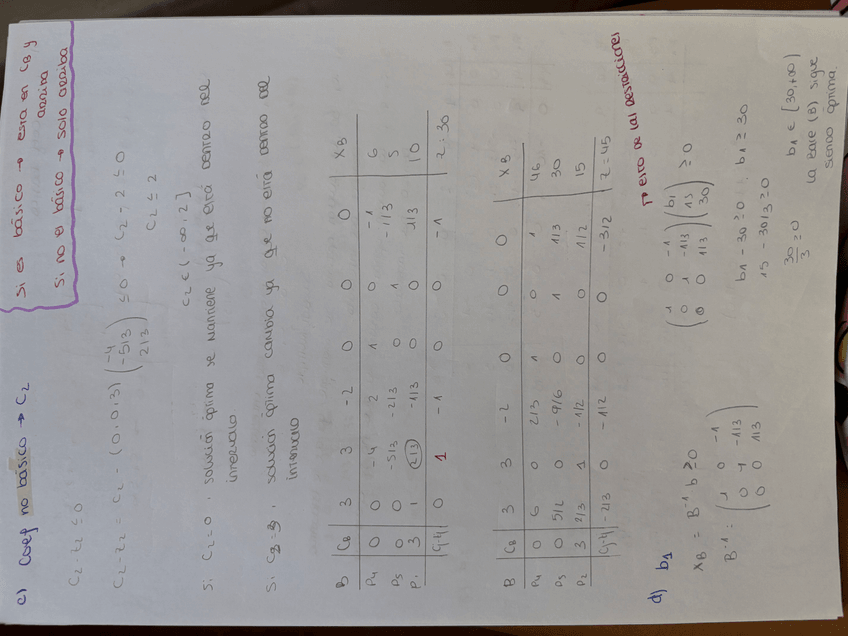 c) coef no básico → C2
Si es básico → esta en CB y arriba
Si no es básico → solo arriba
C2 - Z2 ≤ 0
C2 - Z2 = C2 - (0,0,3) (-4 -5/3 2/3) ≤ 0 → C2 - 2 ≤ 0
C2 ≤ 2
C2 ∈ (-∞, 2]
Si C2 = 0, solución óptima se mantiene ya que está dentro del
intervalo
Si C2 = 3, solución óptima cambia ya que no está dentro del
intervalo
B CB 3 3 -2 0 0 0 XB
P4 0 0 -4 2 1 0 -1 6
P5 0 0 -5/3 -2/3 0 1 -1/3 5
P1 3 1 2/3 -1/3 0 0 1/3 10
Cj-Zj 0 1 -1 0 0 -1 Z = 30
B CB 3 3 -2 0 0 0 XB
P4 0 6 0 2/3 1 0 1 46
P5 0 5/2 0 -9/6 0 1 1/3 30
P2 3 2/3 1 -1/2 0 0 1/2 15
Cj-Zj -2/3 0 -1/2 0 0 -3/2 Z = 45
d) b1
→ esto de las restricciones
XB = B-1 b ≥ 0
(1 0 -1) (b1)
(0 1 -1/3) (15) ≥ 0
(0 0 1/3) (30)
B-1 = (1 0 -1)
(0 1 -1/3)
(0 0 1/3)
b1 - 30 ≥ 0, b1 ≥ 30
15 - 30/3 ≥ 0
30/3 ≥ 0
b1 ∈ [30, +∞)
la base (B) sigue
siendo óptima.